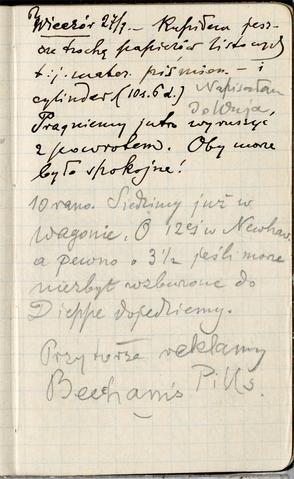 Wieczór 27/9 – Kupiłem jesz-
cze trochę papierów listowych
t.j. mater. piśmien. – i
cylinder (10s. 6d.) Napisałam
Do Wuja.
Pragniemy jutro wyruszyć
z powrotem. Oby morze
było spokojne!
10 rano. Siedzimy już w
wagonie. O 12ej w Newhav.
a pewno o 3 1/2 jeśli morze
niezbyt wzburzone do
Dieppe dojedziemy.
reklamy
Beechams Pills.